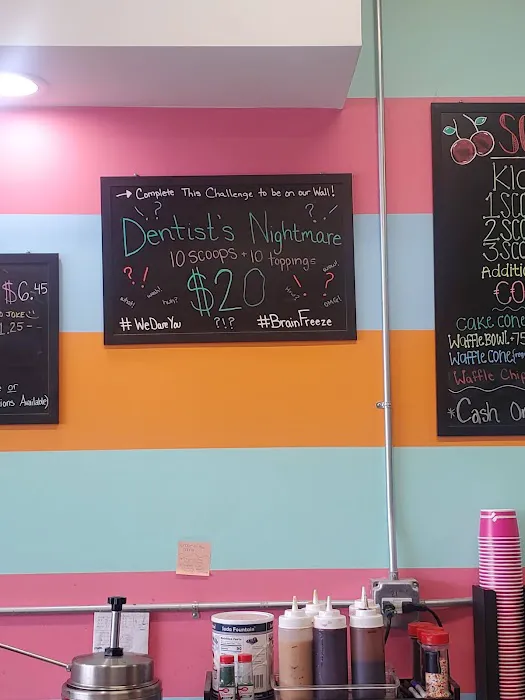 → Complete This Challenge to be on our Wall!
?! ?!
Dentist's Nightmare
10 scoops + 10 toppings=
$20
?! !?
what! woah! huh? OMG!
#WeDareYou ?!? #BrainFreeze
$6.45
JOKE!!
1.25 -
or
ions Available)
Kid
1 Sco
2 Sco
3 Sco
Additi
CO
Cake Cone
Waffle Bowl +75
Waffle Cone
Waffle Chip
*Cash On
Soda Fountain